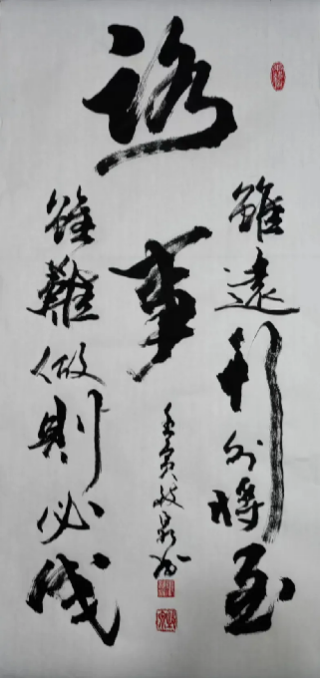 路
雖遠行則將至
事
雖難做則必成
壬寅